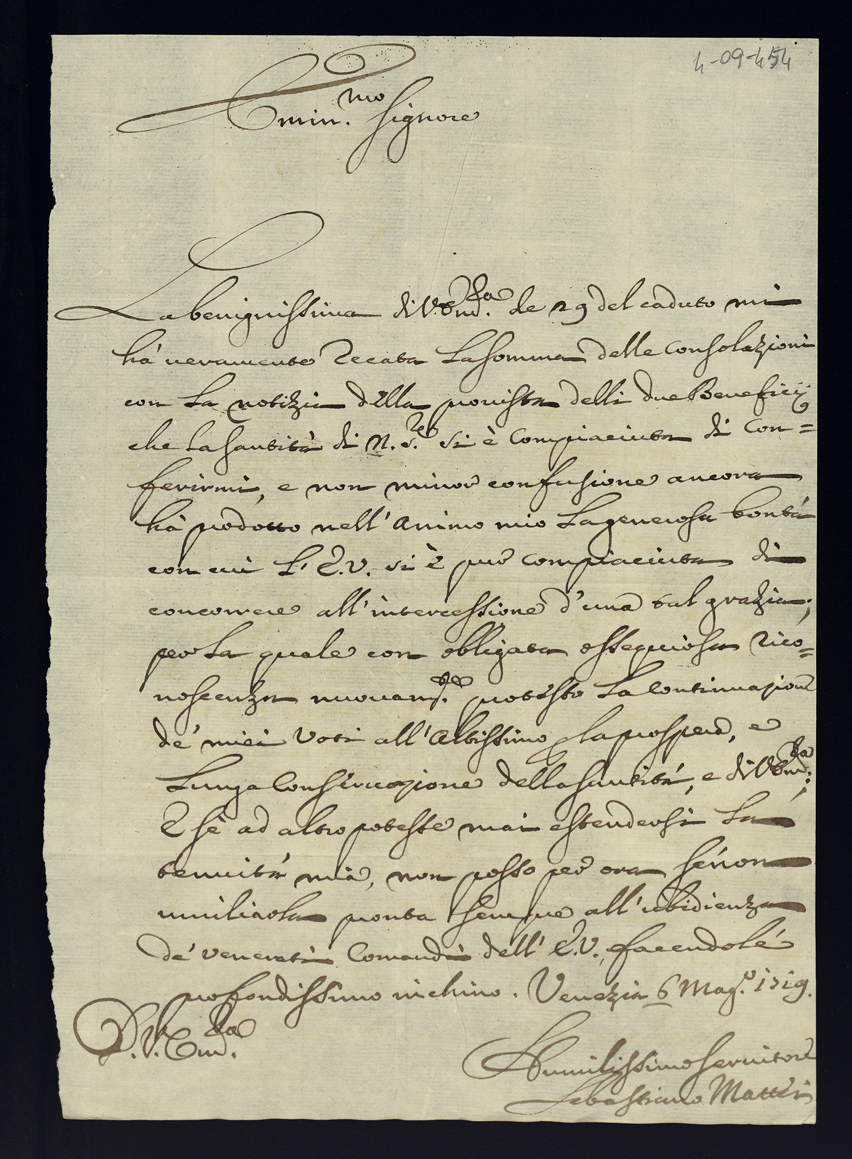 4-09-454
Emin.mo Signore
La benignissima di V. Em.za de 29 del caduto mi
há veramente recata la somma delle consolazioni
con la notizia della provista delli due Beneficij
che la santità di N. S.re si è compiaciuta di con=
ferirmi, e non minor confusione ancora
há prodotto nell'animo mio la generosa bontá
con cui L'E.V. si è pur compiaciuta di
concorrere all'intercessione d'una tal grazia;
per la quale con obligata ossequiosa rico=
noscenza nuovam.te protesto la continuazione
de' miei voti all'Altissimo p la prospera, e
lunga conservazione della santitá, e di V. Em.za;
E sè ad altro potesse mai estendersi la
tenuitá mia, non posso per ora sénon
umiliarla pronta sempre all'ubidienza
de' venerati Comandi dell'E.V., facendole
profondissimo inchino. Venezia 6 Mag.o 1719.
D. V. Em.za
Humilissimo servitore
Sebastiano Mattei